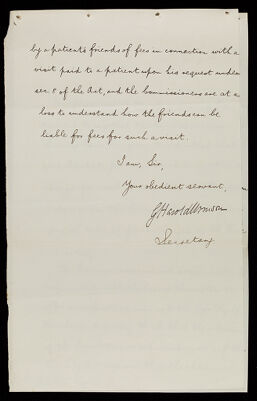 by a patient's friends of fees in connection with a
visit paid to a patient upon his request under
sec. 8 of the Act, and the Commissioners are at a
loss to understand how the friends can be
liable for fees for such a visit.
I am, Sir,
Your obedient servant,
G Harold Urmson
Secretary